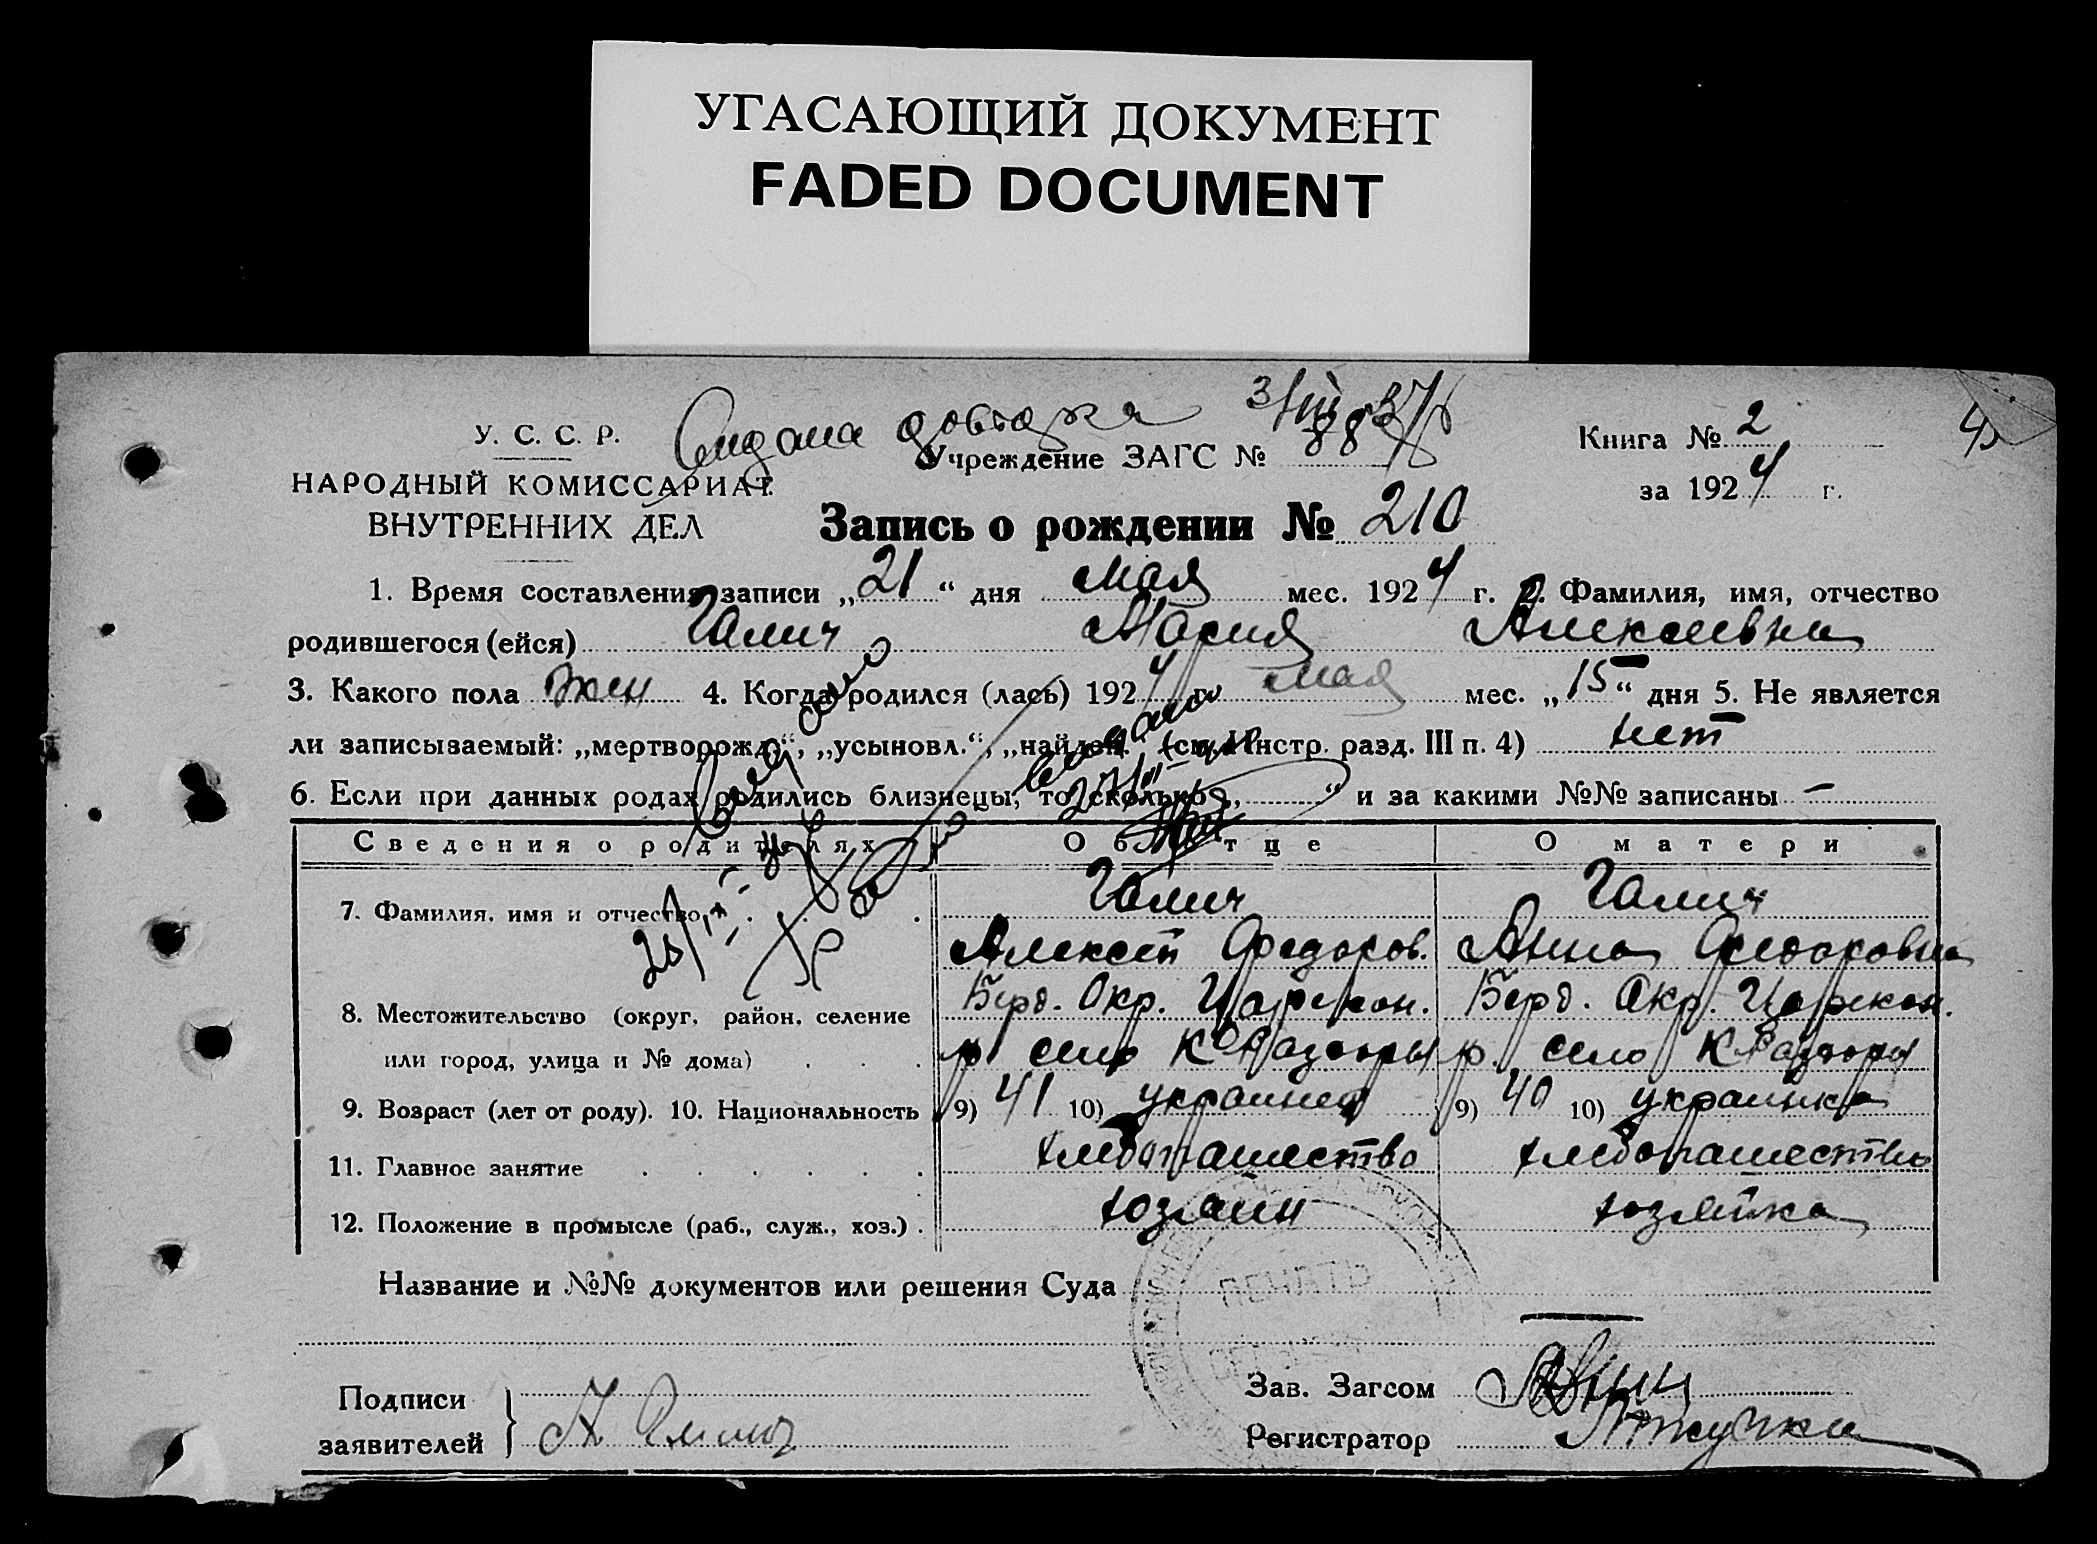 УГАСАЮЩИЙ ДОКУМЕНТ
FADED DOCUMENT
У. С. С. Р.
НАРОДНЫЙ КОМИССАРИАТ
ВНУТРЕННИХ ДЕЛ
Учреждение ЗАГС №
Книга № 2
за 1924 г.
Запись о рождении № 210
1. Время составления записи „21“ дня мая мес. 1924 г. 2. Фамилия, имя, отчество
родившегося (ейся) Галич Мария Алексеевна
3. Какого пола жен 4. Когда родился (лась) 1924 г. мая мес. „15“ дня 5. Не является
ли записываемый: „мертворожд.“, „усыновл.“, „найден.“ (см. Инстр. разд. III п. 4) нет
6. Если при данных родах родились близнецы, то сколько „ “ и за какими №№ записаны -
Сведения о родителях Об отце О матери
7. Фамилия, имя и отчество Галич Галич
Алексей Федоров. Анна Федоровна
8. Местожительство (округ, район, селение Берд. Окр. Царекон. Берд. Окр. Царекон.
или город, улица и № дома) р село К Раздоры р. село К Раздоры
9. Возраст (лет от роду). 10. Национальность 9) 41 10) украинец 9) 40 10) украинка
11. Главное занятие хлебопашество хлебопашество
12. Положение в промысле (раб., служ., хоз.) хозяин хозяйка
Название и №№ документов или решения Суда
ПЕЧАТЬ
Подписи
заявителей А Галич
Зав. Загсом
Регистратор